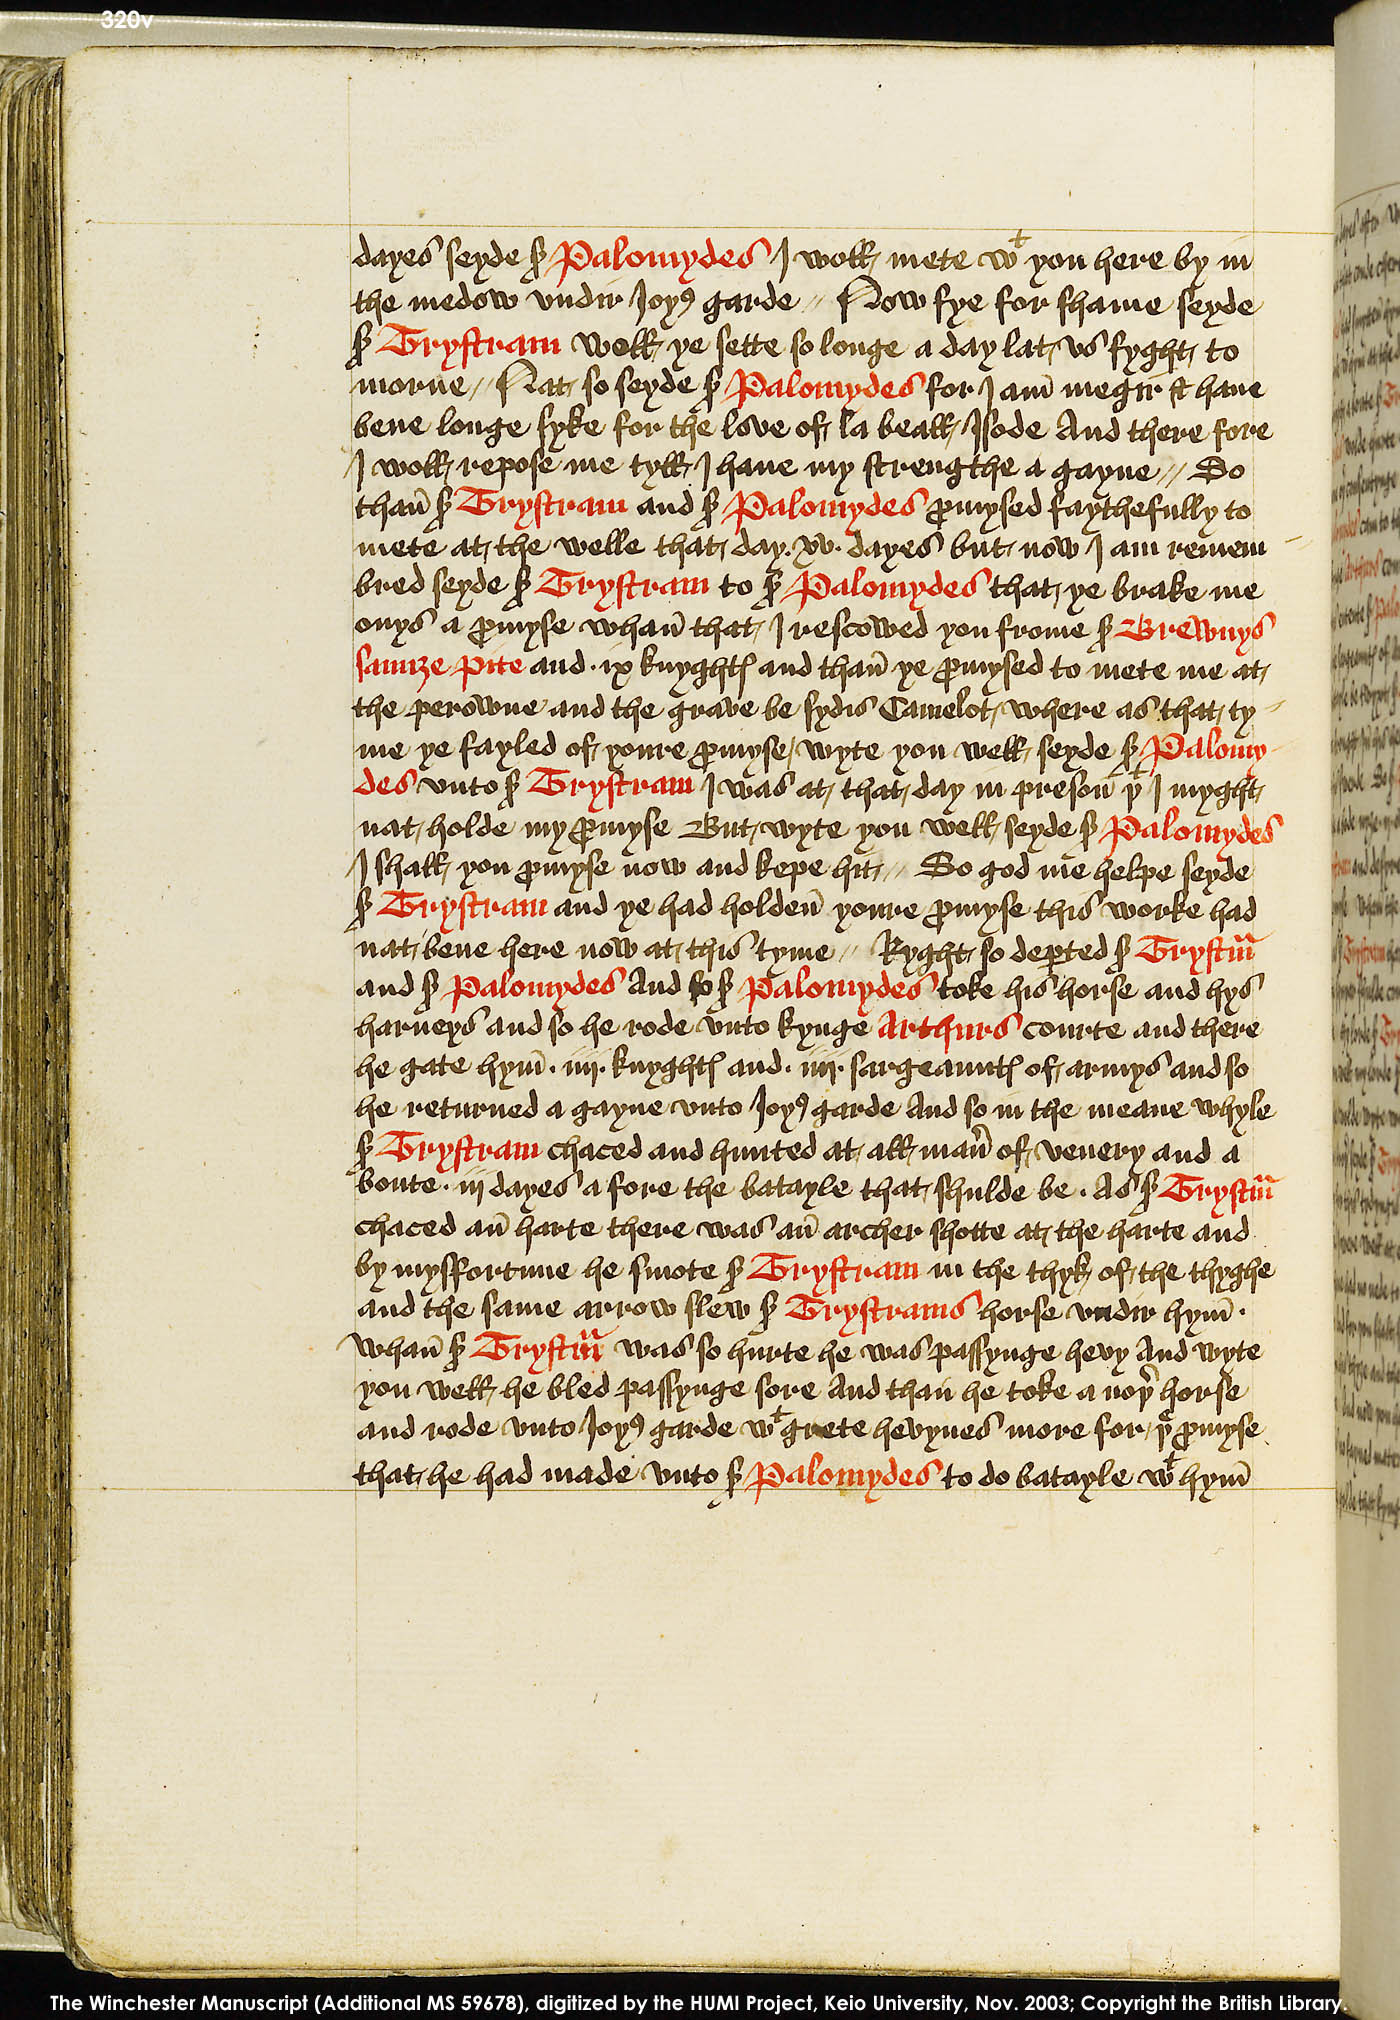 320v
dayes seyde sꝛ Palomydes I woll mete wᵗ you here by in
the medow vndir Joyꝰ garde // Now fye for shame seyde
sꝛ Trystram woll ye sette so longe a day lat vs fyght to
morne // Nat so seyde sꝛ Palomydes for I am̄ megir & haue
bene longe syke for the love of la beall Isode And there fore
I woll repose me tyll I haue my strengthe a gayne // So
than̄ sꝛ Trystram and sꝛ Palomydes ꝓmysed faythefully to
mete at the welle that day .xv. dayes but now I am remem
bred seyde sꝛ Trystram to sꝛ Palomydes that ye brake me
onys a ꝓmyse whan̄ that I rescowed you frome sꝛ Brewnys
saunze pite and .ix knyghtꝭ and than̄ ye ꝓmysed to mete me at
the perowne and the grave be sydis Camelot where as that ty
me ye fayled of youre ꝓmyse / wyte you well seyde sꝛ Palomy
des vnto sꝛ Trystram I was at that day in preson̄ yᵗ I myght
nat holde my ꝓmyse But wyte you well seyde sꝛ Palomydes
I shall you ꝓmyse now and kepe hit // So god me helpe seyde
sꝛ Trystram and ye had holden̄ youre ꝓmyse this worke had
nat bene here now at this tyme // Ryght so deꝑted sꝛ Trystᵃm
and sꝛ Palomydes And so sꝛ Palomydes toke his horse and hys
harneys and so he rode vnto kynge Arthurs courte and there
he gate hym̄ .iiij. knyghtꝭ and .iiij. sargeauntꝭ of armys and so
he returned a gayne vnto Joyꝰ garde And so in the meane whyle
sꝛ Trystram chaced and hunted at all man̄ of venery and a
boute .iij dayes a fore the batayle that shulde be . As sꝛ Trystᵃm
chaced an̄ harte there was an̄ archer shotte at the harte and
by mysfortune he smote sꝛ Trystram in the thyk of the thyghe
and the same arrow slew sꝛ Trystrams horse vndir hym̄ .
Whan̄ sꝛ Trystᵃm was so hurte he was passynge hevy And wyte
you well he bled passynge sore And than̄ he toke a noyͬ horse
and rode vnto Joyꝰ garde wᵗ grete hevynes more for yᵉ ꝓmyse
that he had made vnto sꝛ Palomydes to do batayle wᵗ hym̄
The Winchester Manuscript (Additional MS 59678), digitized by the HUMI Project, Keio University, Nov. 2003; Copyright the British Library.